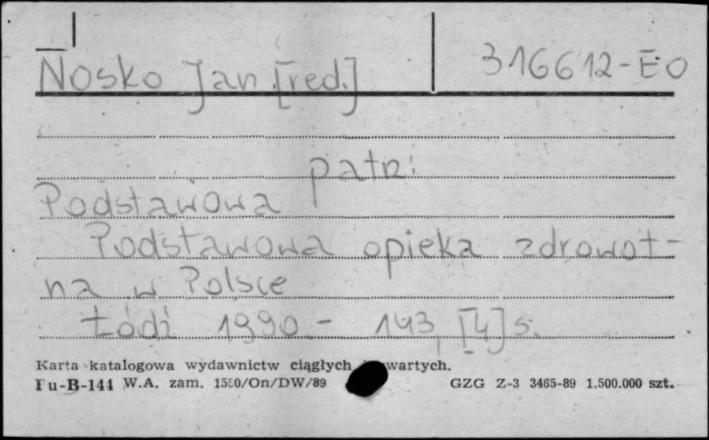 Nosko Jan [red.] 316612-EO
patrz:
Podstawowa
Podstawowa opieka zdrowot-
na w Polsce
Łódź 1990 - 143, [4] s.
Karta katalogowa wydawnictw ciągłych wartych.
Pu-B-144 W.A. zam. 1580/On/DW/89 GZG Z-3 3465-89 1.500.000 szt.